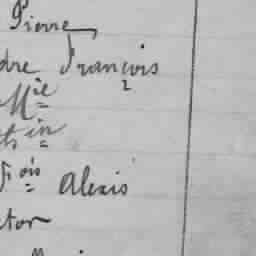 Pierre
dre François
Mie
tin
fois Alexis
ctor